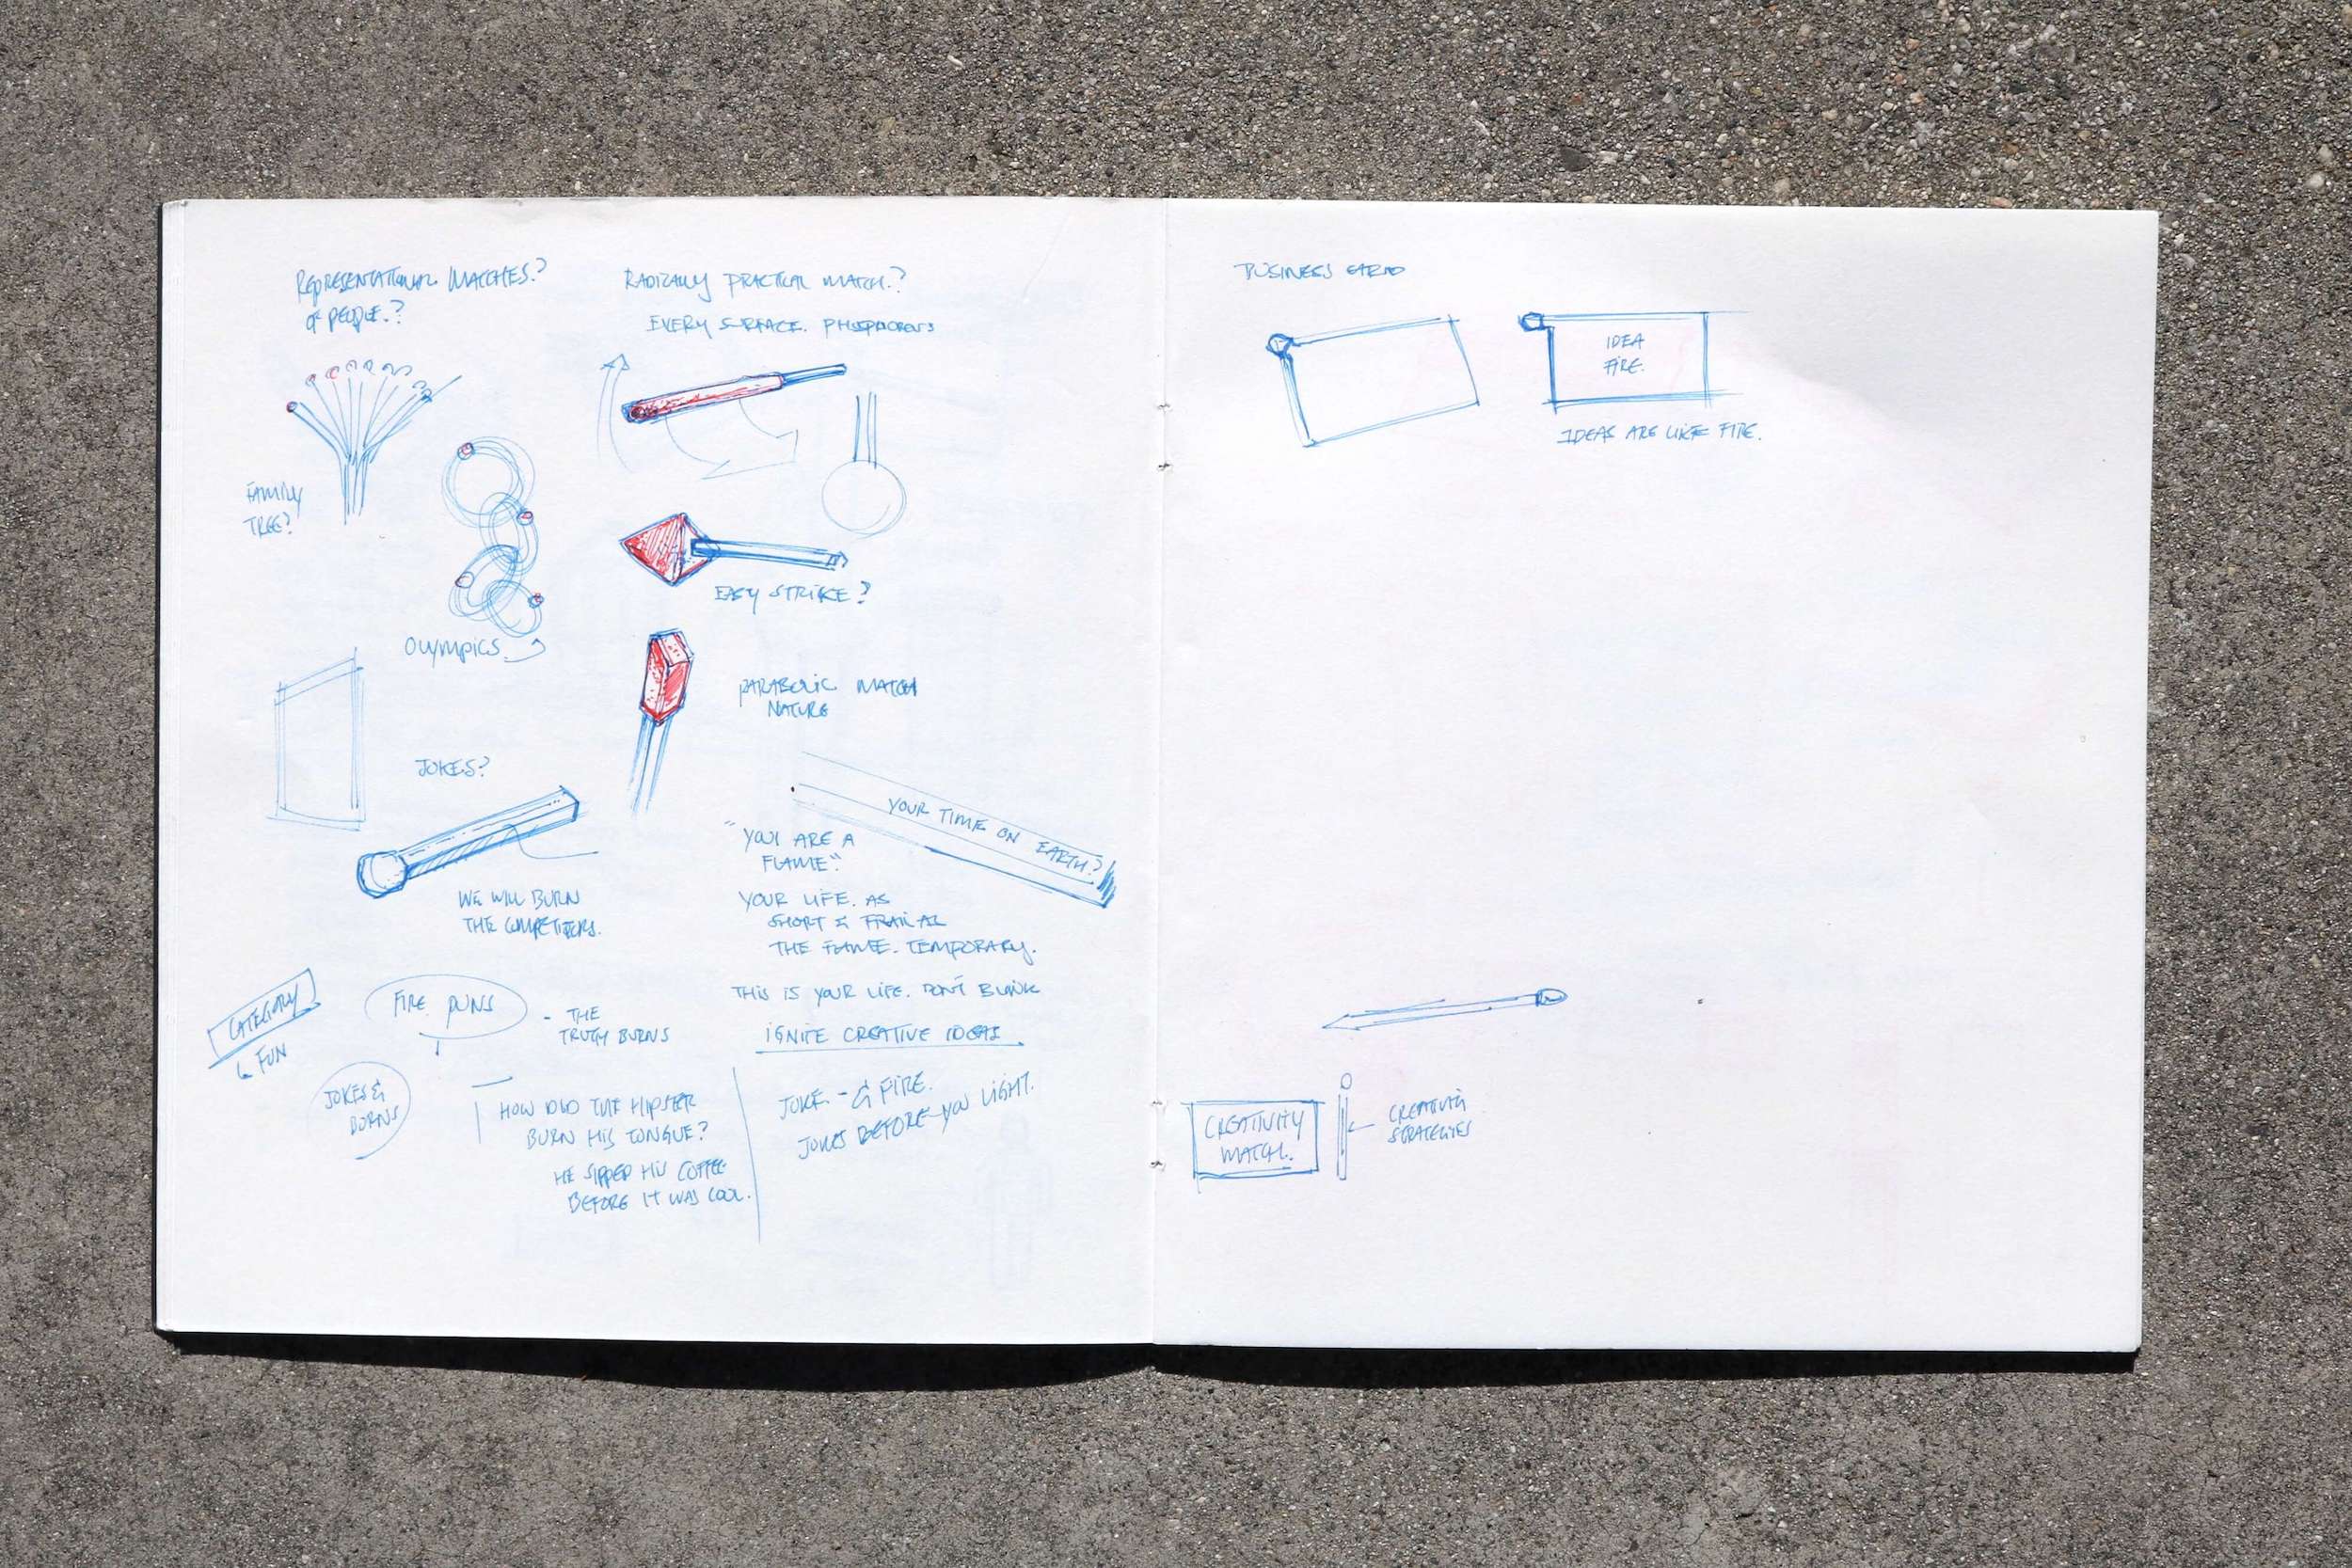 REPRESENTATIONAL MATCHES?
OF PEOPLE.?
FAMILY
TREE?
OLYMPICS
RADICALLY PRACTICAL MATCH.?
EVERY SURFACE. PHOSPHOROUS
EASY STRIKE?
PARABOLIC MATCH
NATURE
JOKES?
WE WILL BURN
THE COMPETITORS.
YOUR TIME ON EARTH?
"YOU ARE A
FLAME."
YOUR LIFE. AS
SHORT & FRAIL AS
THE FLAME. TEMPORARY.
THIS IS YOUR LIFE. DON'T BLINK
IGNITE CREATIVE IDEAS
CATEGORY
↳ FUN
FIRE PUNS
- THE
TRUTH BURNS
JOKES &
BURNS
HOW DID THE HIPSTER
BURN HIS TONGUE?
HE SIPPED HIS COFFEE
BEFORE IT WAS COOL.
JOKE - & FIRE.
JOKES BEFORE YOU LIGHT.
BUSINESS CARD
IDEA
FIRE.
IDEAS ARE LIKE FIRE.
CREATIVITY
MATCH.
CREATIVITY
STRATEGIES